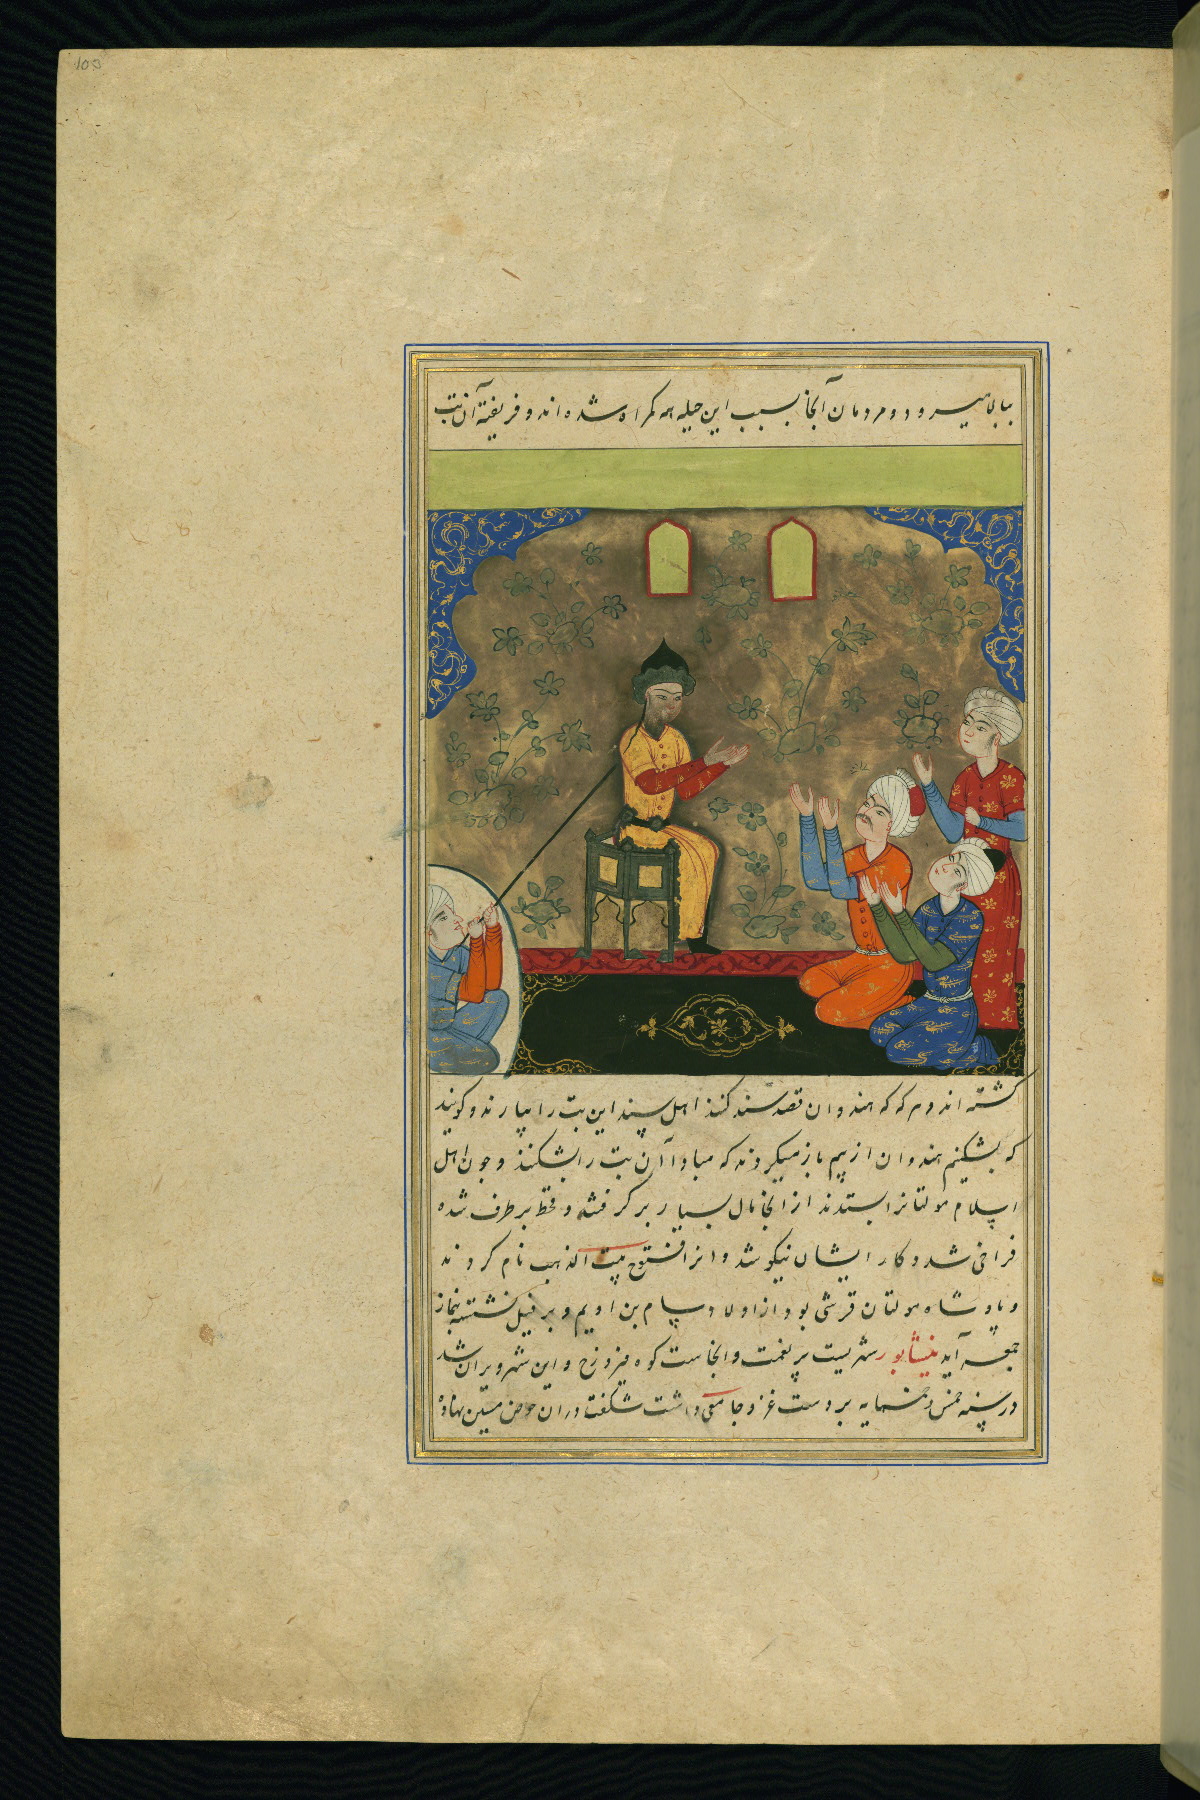 103
ببالا میرود و مردمان آنجا بسبب این حیله همه گمراه شده اند و فریفته آن بت
کشته اند و هر که که هندوان قصد سند کنند اهل سند این بت را بیارند و کویند
که بشکنیم هندوان از بیم باز میکردند که مبادا آن بت را بشکنند و چون اهل
اسلام مولتانرا بستدند از انجا مال بسیار بر کرفتند و قحط بر طرف شده
فراخی شد و کار ایشان نیکو شد و انرا فتوح بیت الذهب نام کردند
و پادشاه مولتان قرشی بود از اولاد سام بن اویم و بر فیل نشسته بنماز
جمعه آید نیشابور شهریست پر نعمت و انجاست کوه فیروزج و این شهر ویران شد
در سنه خمس و خمسمایه بر دست غز و جامعی داشت شکفت دران حوض مسین نهاده